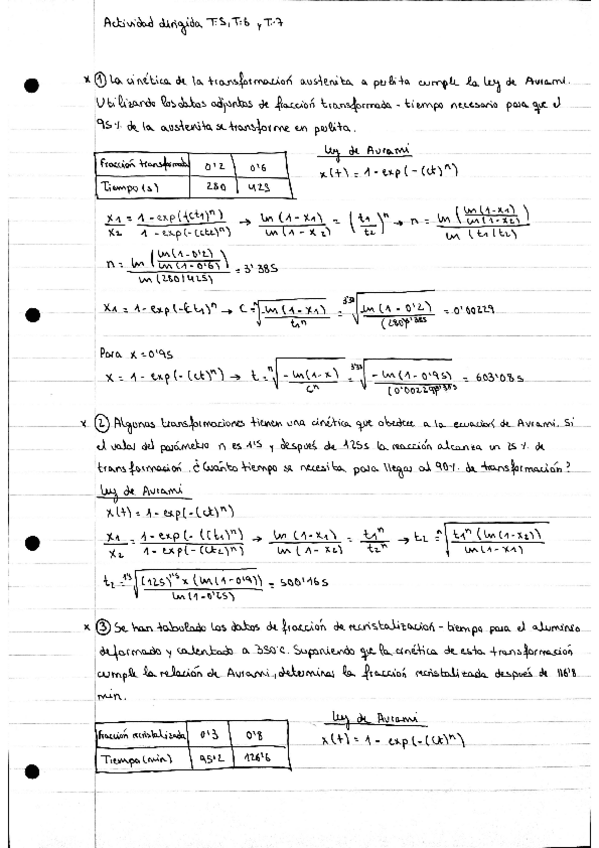 Actividad dirigida T.5, T.6 y T.7
x ① La cinética de la transformación austenita a perlita cumple la ley de Avrami.
Utilizando los datos adjuntos de fracción transformada - tiempo necesario para que el
95% de la austenita se transforme en perlita.
Fracción transformada 0'2 0'6
Tiempo (s) 280 425
Ley de Avrami
x(t) = 1 - exp(-(ct)^n)
x1/x2 = (1 - exp(-(ct1)^n))/(1 - exp(-(ct2)^n)) → ln(1-x1)/ln(1-x2) = (t1/t2)^n → n = ln(ln(1-x1)/ln(1-x2))/ln(t1/t2)
n = ln(ln(1-0'2)/ln(1-0'6))/ln(280/425) = 3'385
x1 = 1 - exp(-(ct1)^n) → c = ⁿ√(-ln(1-x1)/t1^n) = √(ln(1-0'2)/(280)^3'385) = 0'00229
Para x = 0'95
x = 1 - exp(-(ct)^n) → t = ⁿ√(-ln(1-x)/c^n) = √(-ln(1-0'95)/(0'00229)^3'385) = 603'08s
x ② Algunas transformaciones tienen una cinética que obedece a la ecuacion de Avrami. Si
el valor del parámetro n es 1'5 y después de 125s la reacción alcanza un 25% de
transformación. ¿Cuánto tiempo se necesita para llegar al 90% de transformación?
Ley de Avrami
x(t) = 1 - exp(-(ct)^n)
x1/x2 = (1 - exp(-(ct1)^n))/(1 - exp(-(ct2)^n)) → ln(1-x1)/ln(1-x2) = t1^n/t2^n → t2 = ⁿ√(t1^n (ln(1-x2))/ln(1-x1))
t2 = ¹'⁵√((125)^1'5 x (ln(1-0'9))/ln(1-0'25)) = 500'16s
x ③ Se han tabulado los datos de fracción de recristalización - tiempo para el aluminio
deformado y calentado a 350°C. Suponiendo que la cinética de esta transformación
cumple la relación de Avrami, determinar la fracción recristalizada después de 116'8
min.
Fracción recristalizada 0'3 0'8
Tiempo (min) 95'2 126'6
Ley de Avrami
x(t) = 1 - exp(-(ct)^n)